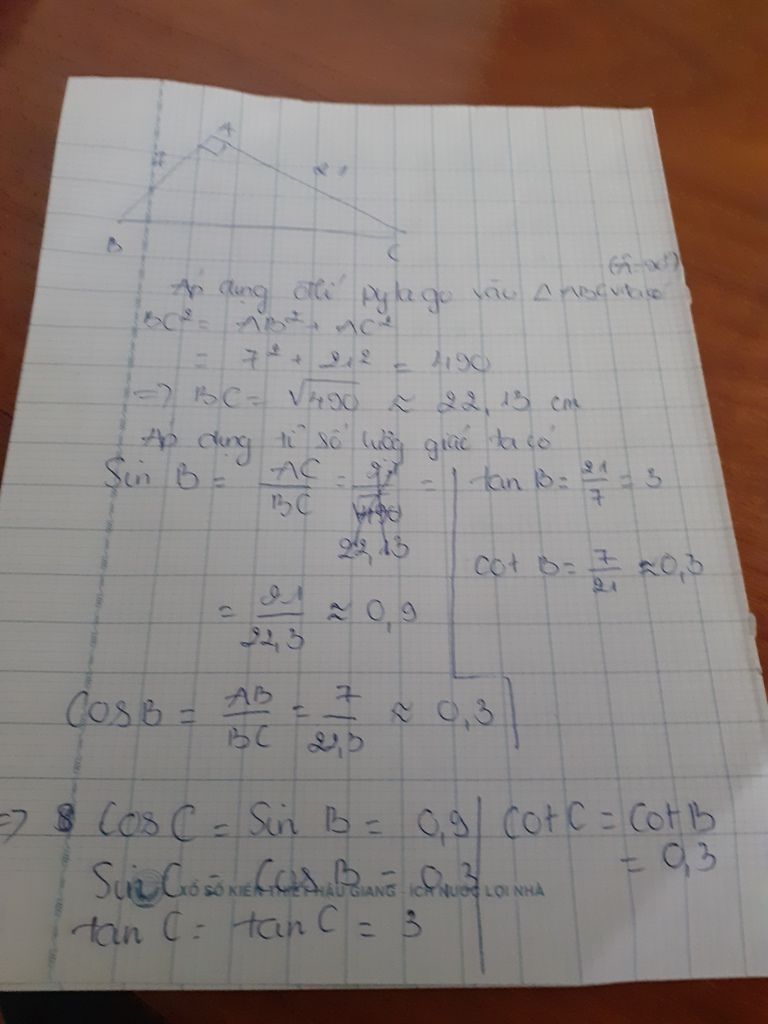 A
7
21
B
C
Áp dụng đlí pytago vào △ABC
BC² = AB² + AC²
= 7² + 21² = 490
=> BC = √490 ≈ 22,13 cm
Áp dụng tỉ số lượng giác ta có
Sin B = AC/BC = 21/22,13 =
= 21/22,3 ≈ 0,9
Cos B = AB/BC = 7/22,3 ≈ 0,3
tan B = 21/7 = 3
Cot B = 7/21 ≈ 0,3
=> Cos C = Sin B = 0,9
Sin C = Cos B = 0,3
tan C = tan C = 3
Cot C = Cot B
= 0,3
XỔ SỐ KIẾN THIẾT HẬU GIANG - ÍCH NƯỚC LỢI NHÀ